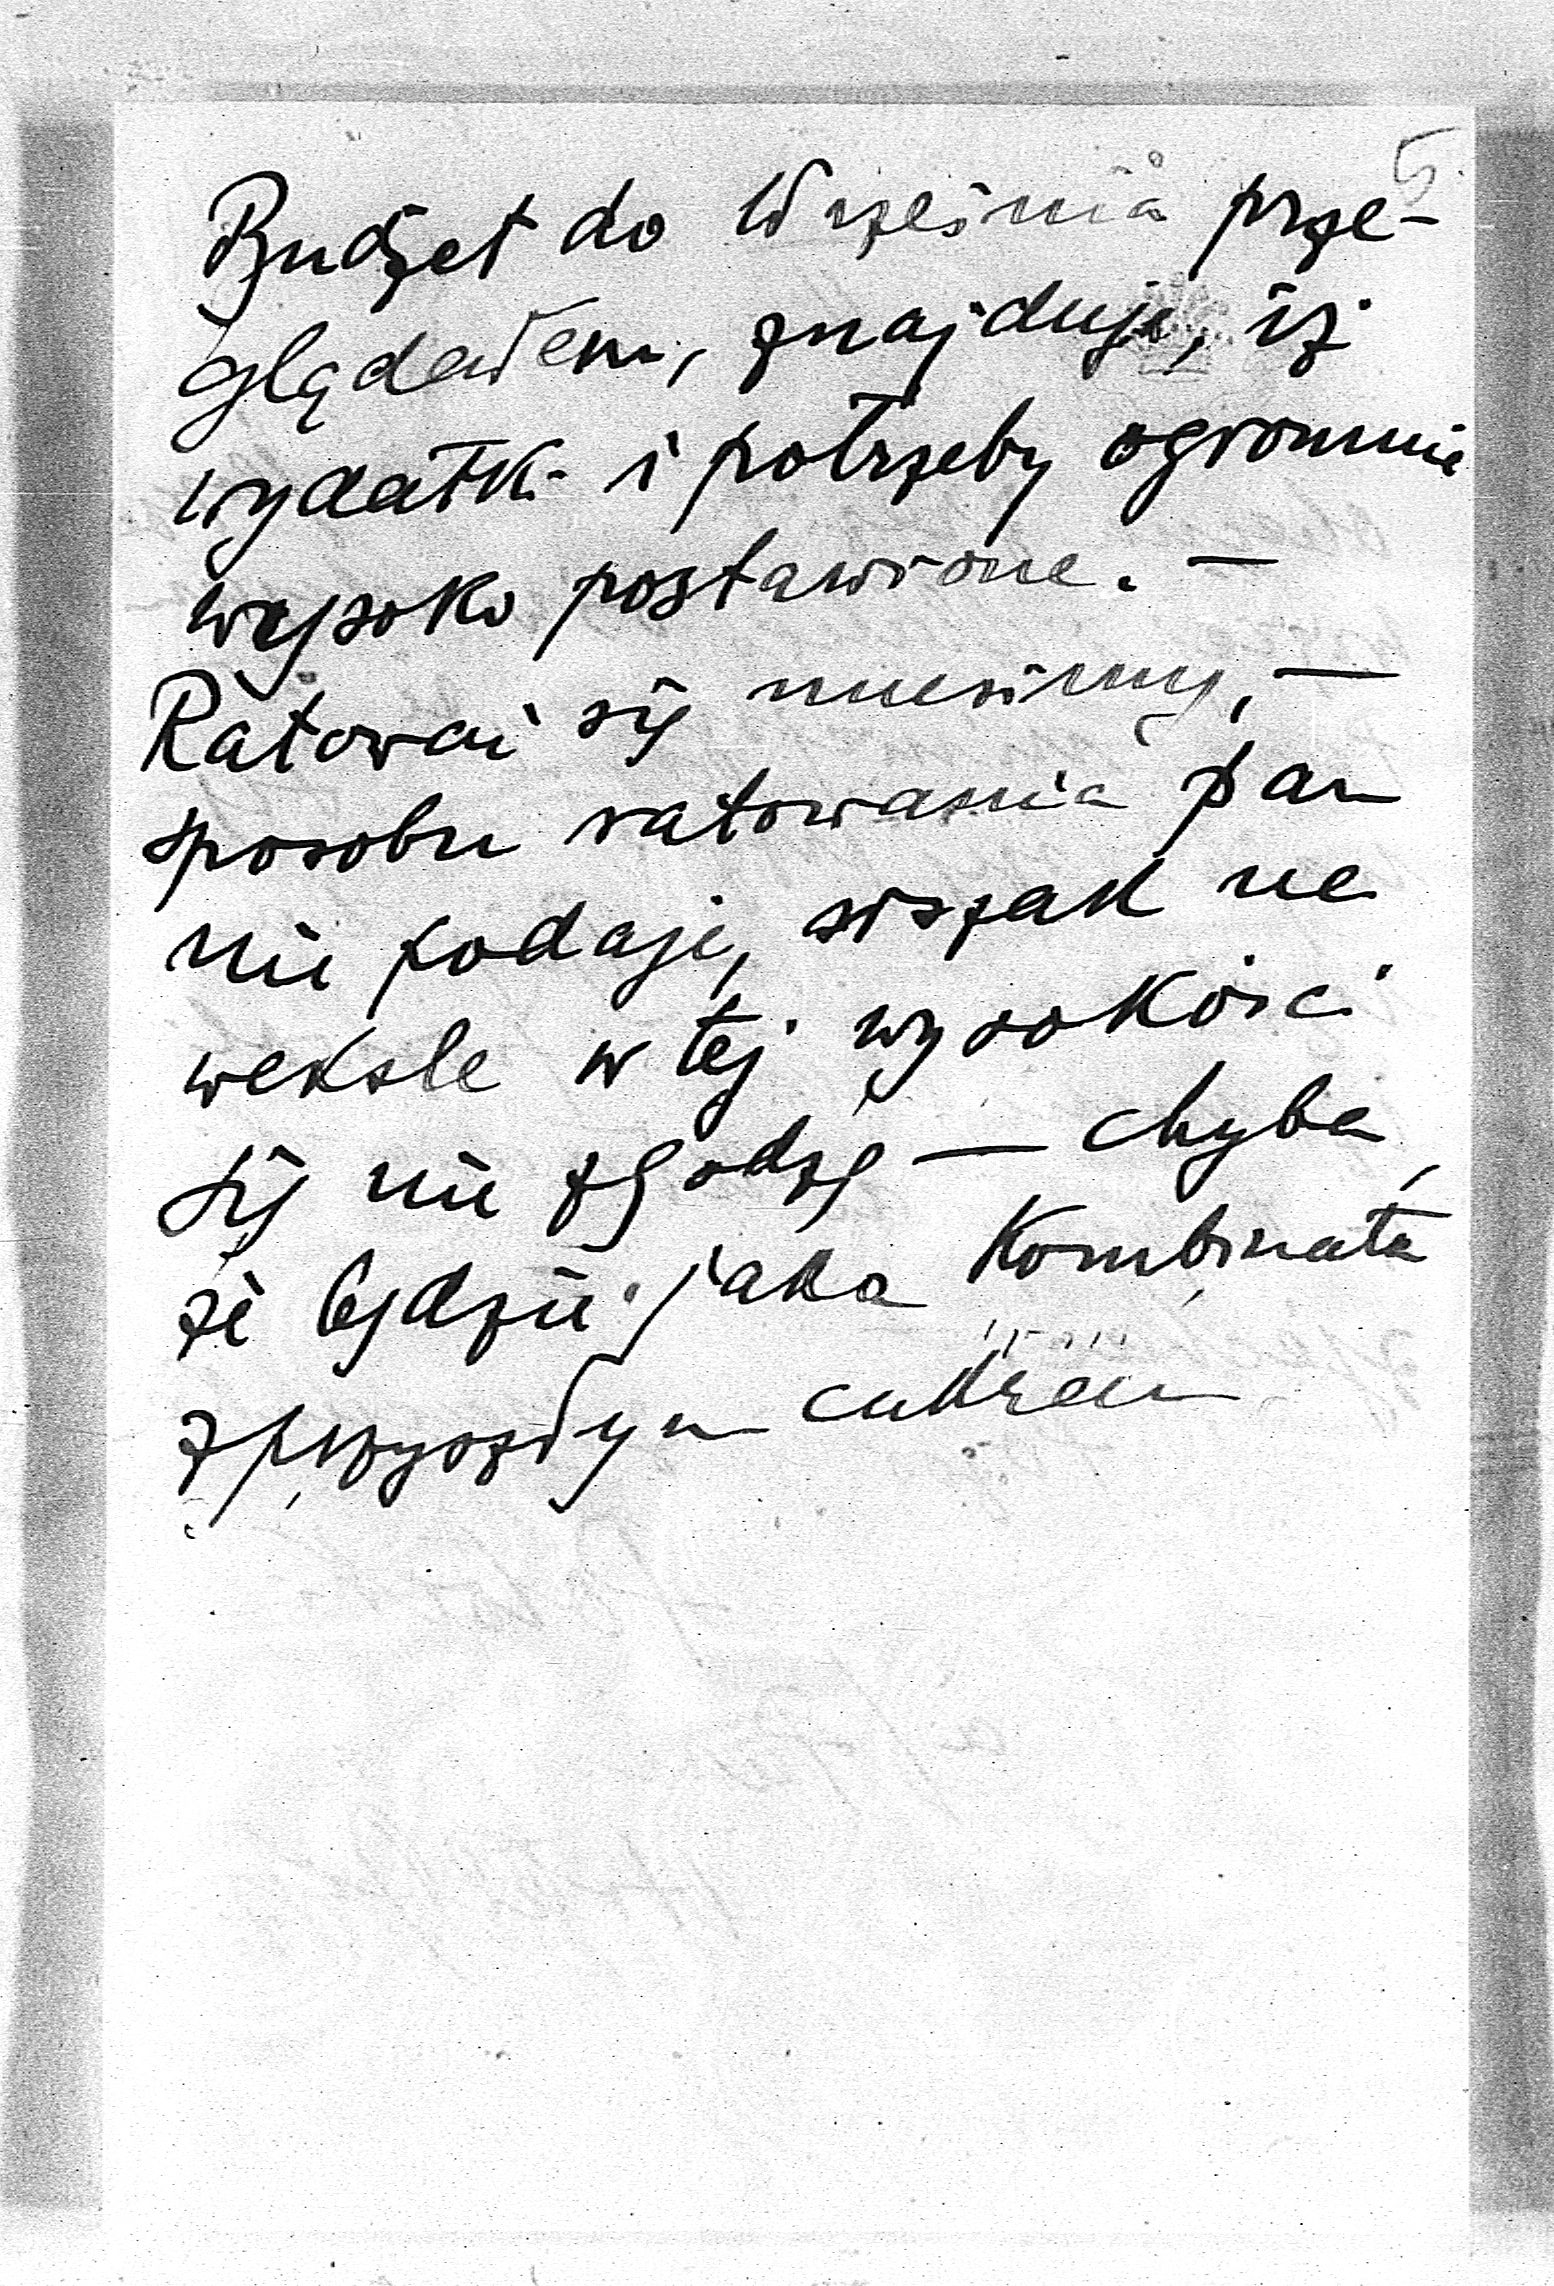 5.
Budżet do Września prze-
glądałem, znajduję, iż
wydatki i potrzeby ogromnie
wysoko postawione. —
Ratować się musimy, —
sposobu ratowania pan
nie podaje, wszak na
weksle w tej wysokości
się nie zgodzę — chyba,
że będzie jaka kombinata
z przyszłym cukrem